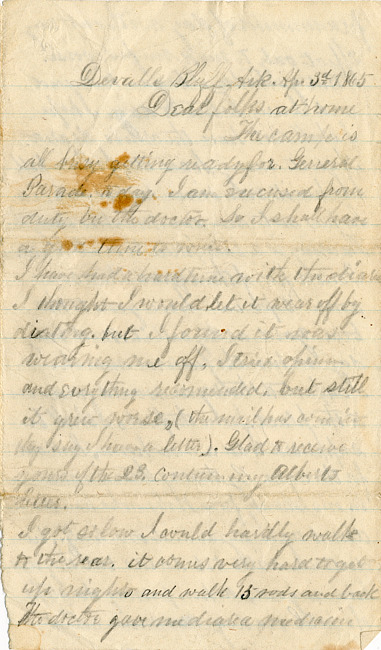 Devalls Bluff Ark. Ap. 3rd 1865
Dear folks at home
The camp is
all busy getting ready for General
Parade to day. I am excused from
duty by the doctor. So I shall have
a time to write.
I have had a hard time with the diarea
I thought I would let it wear off by
diating. but I found it was
wearing me off, I tried opium
and evrything recomended, but still
it grew worse, (the mail has come in
they say I have a letter). Glad to receive
yours of the 23. containing Alberts
letter.
I got so low I could hardly walk
to the rear. it comes very hard to get
up nights and walk 15 rods and back
the doctor gave me diarea medicin